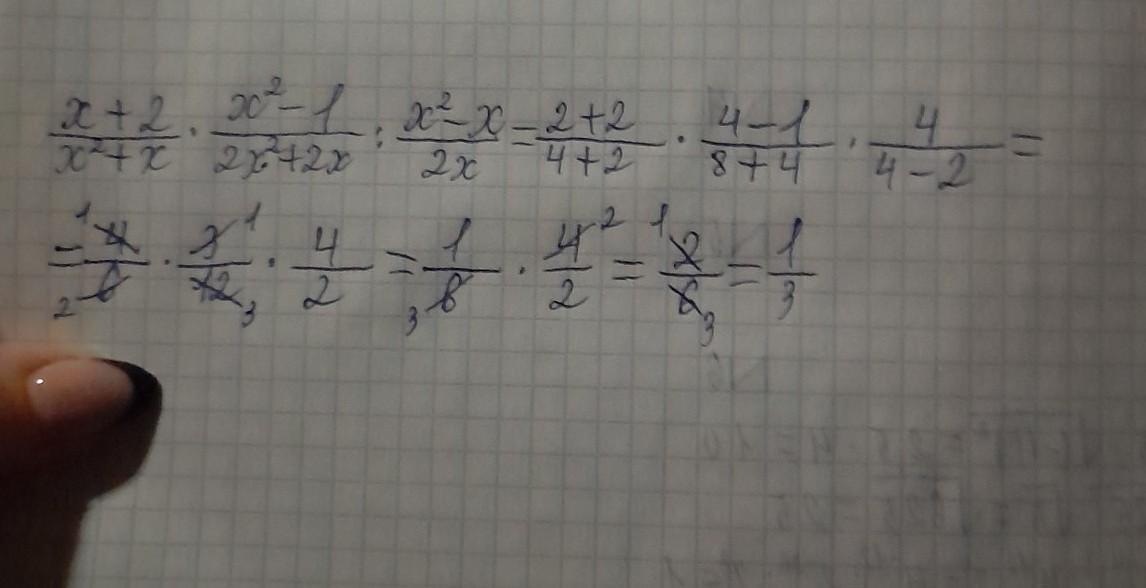 \frac{x+2}{x^2+x} \cdot \frac{x^2-1}{2x^2+2x} : \frac{x^2-x}{2x} = \frac{2+2}{4+2} \cdot \frac{4-1}{8+4} \cdot \frac{4}{4-2} =
= \frac{4}{6} \cdot \frac{3}{12} \cdot \frac{4}{2} = \frac{1}{6} \cdot \frac{4}{2} = \frac{2}{6} = \frac{1}{3}